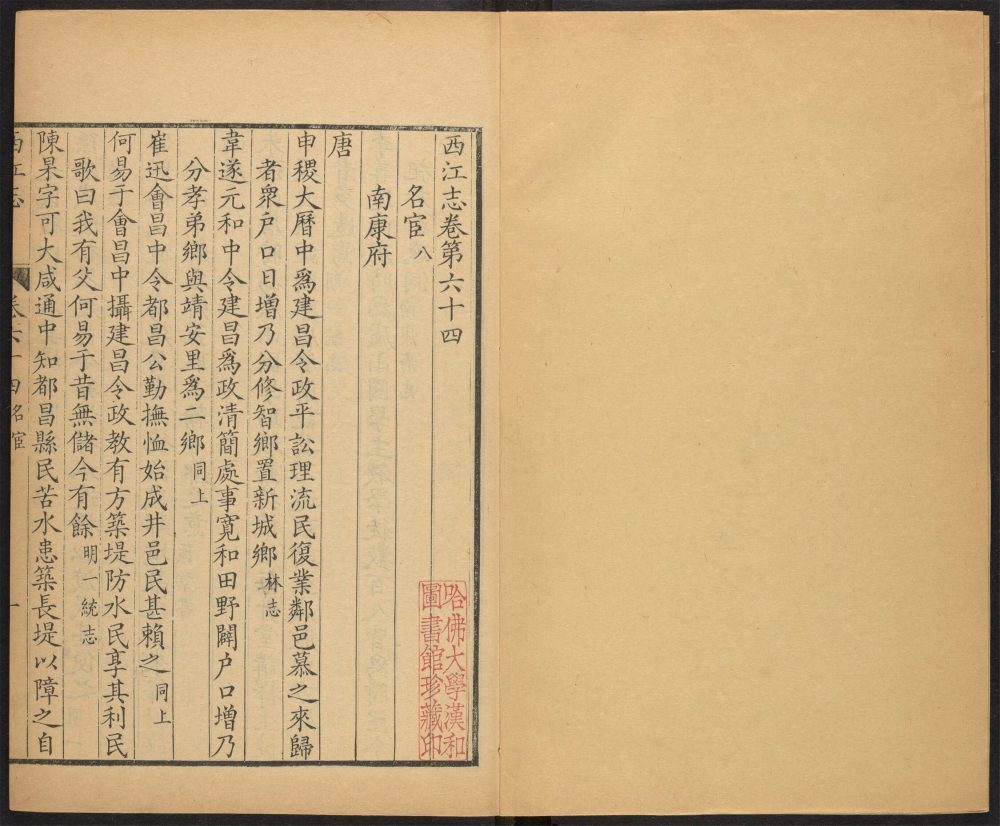 西江志卷第六十四
名宦 八
南康府
唐
申稷大曆中爲建昌令政平訟理流民復業鄰邑慕之來歸
者衆戶口日增乃分修智鄉置新城鄉 林志
韋遂元和中令建昌爲政清簡處事寬和田野闢戶口增乃
分孝弟鄉與靖安里爲二鄉 同上
崔迅會昌中令都昌公勤撫恤始成井邑民甚賴之 同上
何易于會昌中攝建昌令政教有方築堤防水民享其利民
歌曰我有父何易于昔無儲今有餘 明一統志
陳杲字可大咸通中知都昌縣民苦水患築長堤以障之自
西江志 卷六十四 名宦 一
哈佛大學漢和
圖書館珍藏印